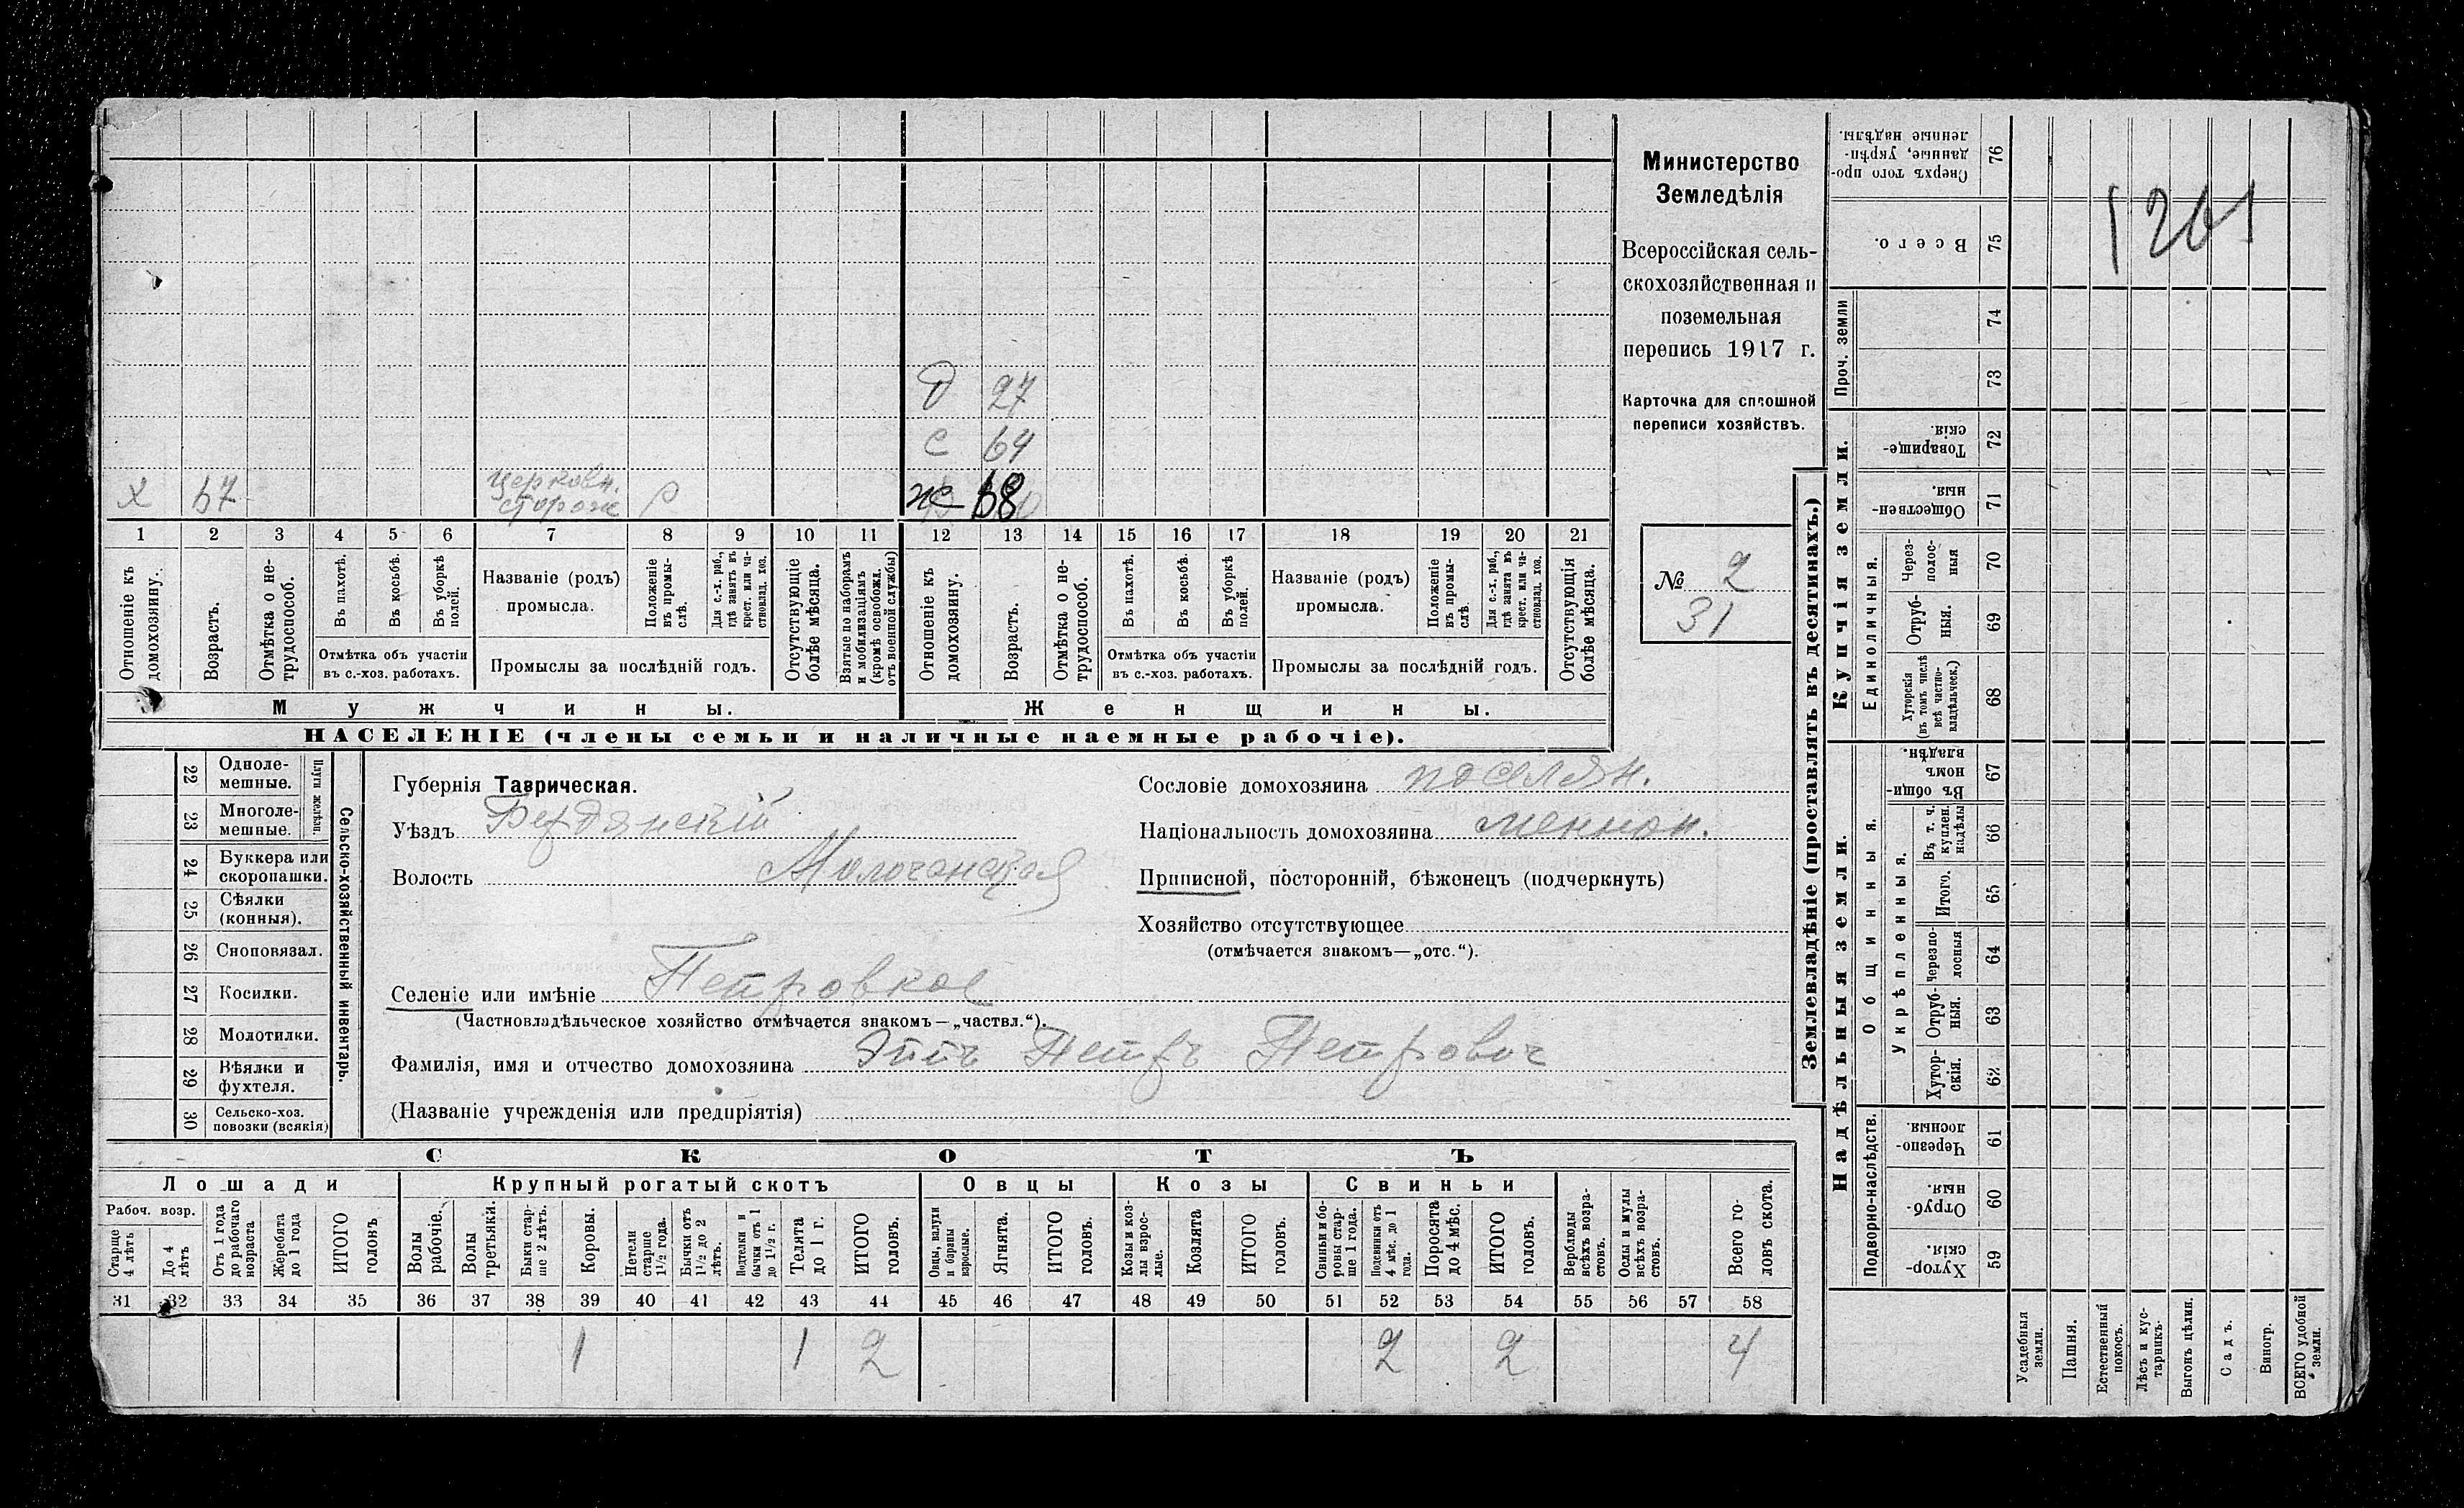 Министерство
Земледѣлія
Всероссійская сель-
скохозяйственная и
поземельная
перепись 1917 г.
Карточка для сплошной
переписи хозяйствъ.
№ 2
31
1201
Д 27
С 64
Х 67 Церковн. сторож Р ж 68
1 2 3 4 5 6 7 8 9 10 11 12 13 14 15 16 17 18 19 20 21
Отношеніе къ домохозяину.
Возрастъ.
Отмѣтка о не-трудоспособ.
Въ пахотѣ.
Въ косьбѣ.
Въ уборкѣ полей.
Отмѣтка объ участіи
въ с.-хоз. работахъ.
Названіе (родъ)
промысла.
Положеніе въ промы-слѣ.
Для с.-х. раб., гдѣ занятъ въ крест. или ча-стновлад. хоз.
Промыслы за послѣдній годъ.
Отсутствующіе болѣе мѣсяца.
Взятые по наборамъ и мобилизаціямъ (кромѣ освобожд. отъ военной службы)
Отношеніе къ домохозяину.
Возрастъ.
Отмѣтка о не-трудоспособ.
Въ пахотѣ.
Въ косьбѣ.
Въ уборкѣ полей.
Отмѣтка объ участіи
въ с.-хоз. работахъ.
Названіе (родъ)
промысла.
Положеніе въ промы-слѣ.
Для с.-х. раб., гдѣ занята въ крест. или ча-стновлад. хоз.
Промыслы за послѣдній годъ.
Отсутствующія болѣе мѣсяца.
Мужчины.
Женщины.
НАСЕЛЕНІЕ (члены семьи и наличные наемные рабочіе).
22 Одноле-мешные.
23 Многоле-мешные.
Плуги желѣзн.
24 Буккера или скоропашки.
25 Сѣялки (конныя).
26 Сноповязал.
27 Косилки.
28 Молотилки.
29 Вѣялки и фухтеля.
30 Сельско-хоз. повозки (всякія)
Сельско-хозяйственный инвентарь.
Губернія Таврическая.
Уѣздъ Бердянскій
Волость Молочанская
Селеніе или имѣніе Петровкое
(Частновладѣльческое хозяйство отмѣчается знакомъ—„частвл.“).
Фамилія, имя и отчество домохозяина Эппъ Петръ Петрович
(Названіе учрежденія или предпріятія)
Сословіе домохозяина поселян.
Національность домохозяина меннон.
Приписной, посторонній, бѣженецъ (подчеркнуть)
Хозяйство отсутствующее
(отмѣчается знакомъ—„отс.“).
СКОТЪ
Лошади
Крупный рогатый скотъ
Овцы
Козы
Свиньи
Рабоч. возр.
Старше 4 лѣтъ
До 4 лѣтъ
Отъ 1 года до рабочаго возраста
Жеребята до 1 года
ИТОГО головъ
Волы рабочіе.
Волы третьяки.
Быки стар-ше 2 лѣтъ.
Коровы.
Нетели старше 1½ года.
Бычки отъ 1½ до 2 лѣтъ.
Подтелки и бычки отъ 1 до 1½ г.
Телята до 1 г.
ИТОГО головъ.
Овцы, валухи и бараны взрослые.
Ягнята.
ИТОГО головъ.
Козы и коз-лы взрос-лые.
Козлята
ИТОГО головъ.
Свиньи и бо-ровы стар-ше 1 года.
Подсвинки отъ 4 мѣс. до 1 года.
Поросята до 4 мѣс.
ИТОГО головъ.
Верблюды всѣхъ возра-стовъ.
Ослы и мулы всѣхъ возра-стовъ.
Всего го-ловъ скота.
31 32 33 34 35 36 37 38 39 40 41 42 43 44 45 46 47 48 49 50 51 52 53 54 55 56 57 58
1 1 2 2 2 4
Землевладѣніе (проставлять въ десятинахъ.)
Надѣльныя земли.
Купчія земли.
Проч. земли
Подворно-наслѣдств.
Общинныя.
Укрѣпленныя.
Единоличныя.
Сверхъ того про-данные, укрѣп-ленные надѣлы. 76
Всего. 75
74
73
Товарище-скія. 72
Обществен-ныя. 71
Через-полос-ныя 70
Отруб-ныя. 69
Хуторскія (въ томъ числѣ всѣ частно-владѣльческ.) 68
Въ общин-номъ владѣн. 67
Въ т. ч. куплен. надѣлы 66
Итого. 65
Черезпо-лосныя 64
Отруб-ныя. 63
Хутор-скія. 62
Черезпо-лосныя. 61
Отруб-ныя. 60
Хутор-скія. 59
Усадебныя земли.
Пашня.
Естественный покосъ.
Лѣсъ и кус-тарникъ.
Выгонъ цѣлин.
Садъ.
Виногр.
ВСЕГО удобной земли.